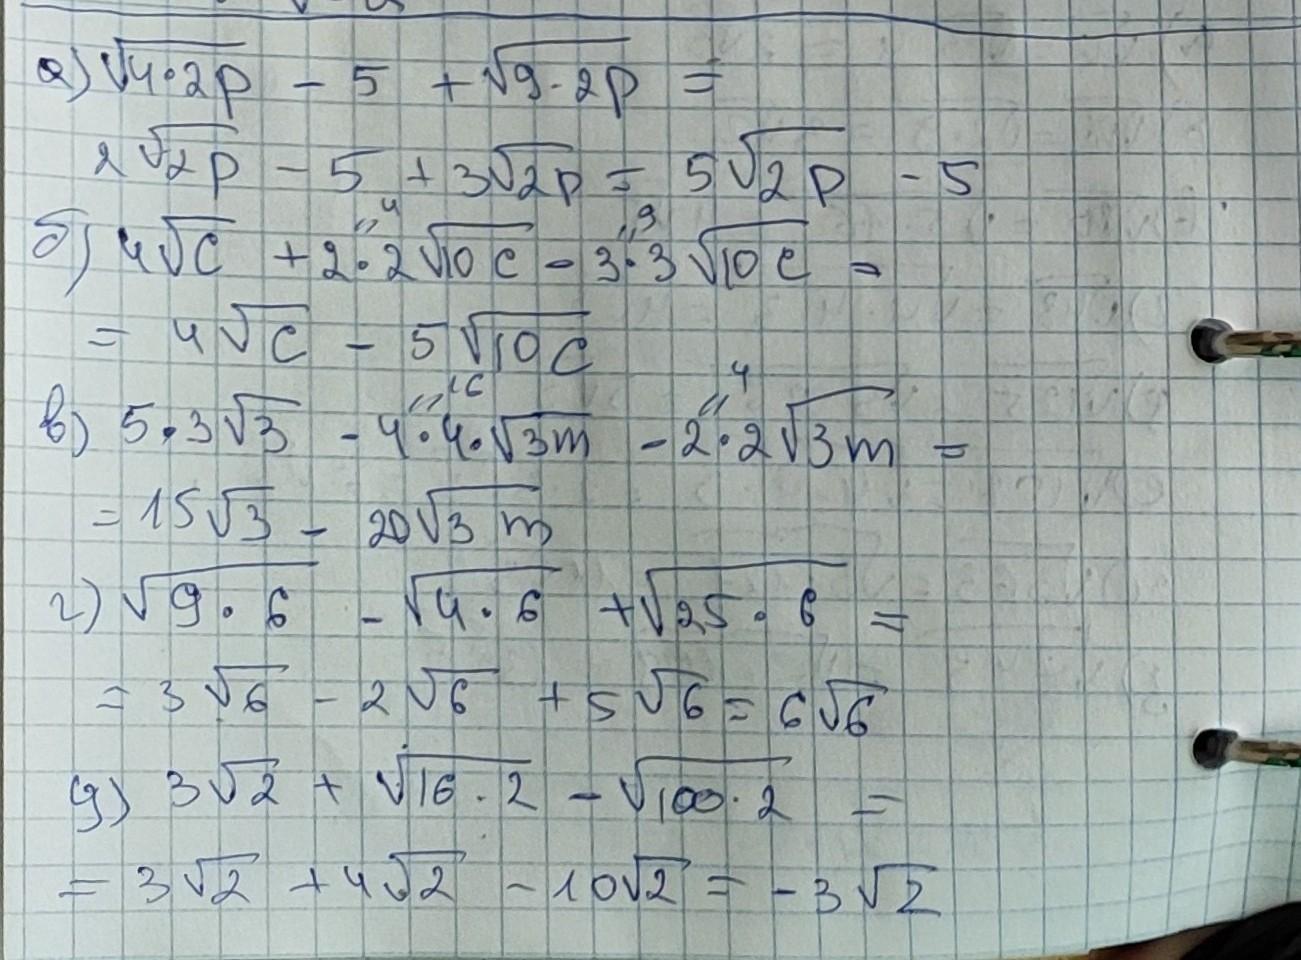 а) √4·2p - 5 + √9·2p =
2√2p - 5 + 3√2p = 5√2p - 5
б) 4√c + 2·2√10c - 3·3√10c =
= 4√c - 5√10c
в) 5·3√3 - 4·4·√3m - 2·2√3m =
= 15√3 - 20√3m
г) √9·6 - √4·6 + √25·6 =
= 3√6 - 2√6 + 5√6 = 6√6
д) 3√2 + √16·2 - √100·2 =
= 3√2 + 4√2 - 10√2 = -3√2